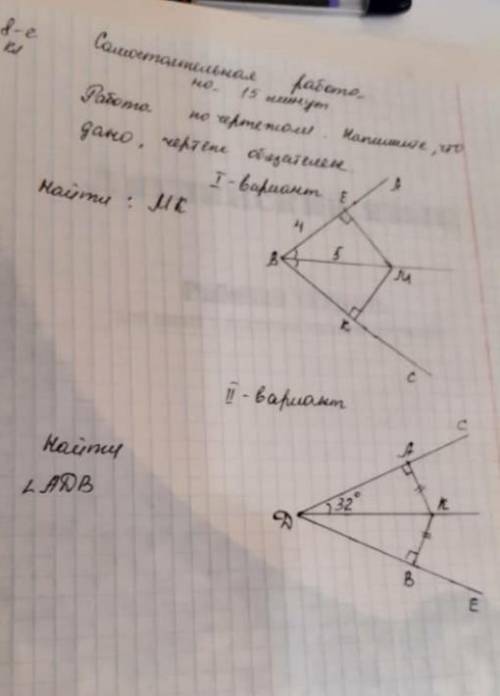 8-е
кл
Самостоятельная работа
на 15 минут
Работа по чертежам. Напишите, что
дано, чертеж обязателен.
I - вариант
Найти : МК
А
Е
4
В
5
М
К
С
II - вариант
Найти
∠АДВ
С
А
32°
Д
К
В
Е